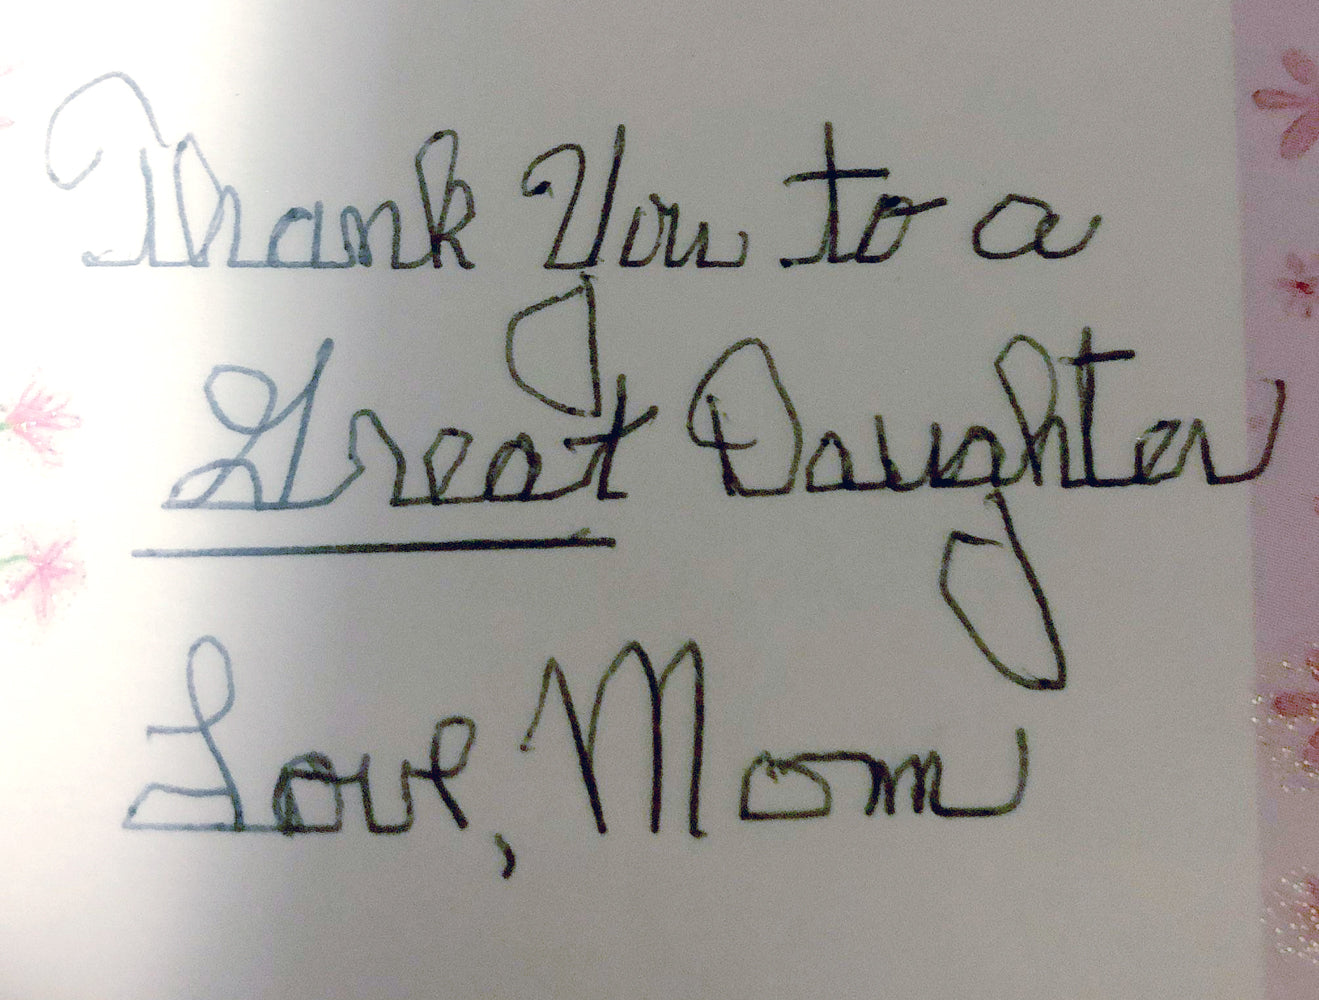 Thank You to a
Great Daughter
Love, Mom